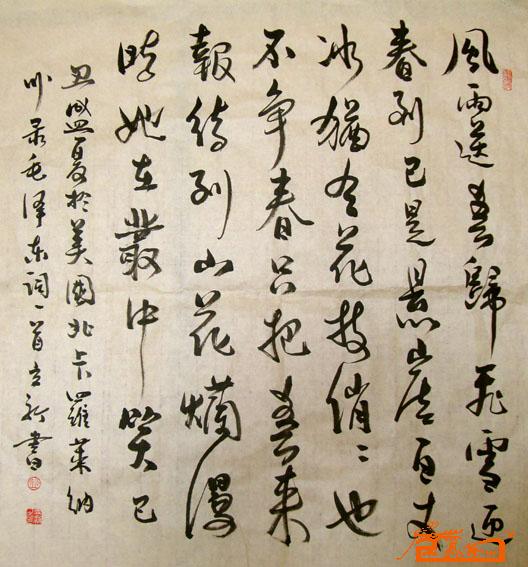 風雨送春歸飛雪迎
春到已是懸崖百丈
冰猶有花枝俏〻也
不争春只把春来
報待到山花爛漫
時她在叢中笑己
丑盛夏於美國北卡羅萊納
州录毛泽东词一首立新書